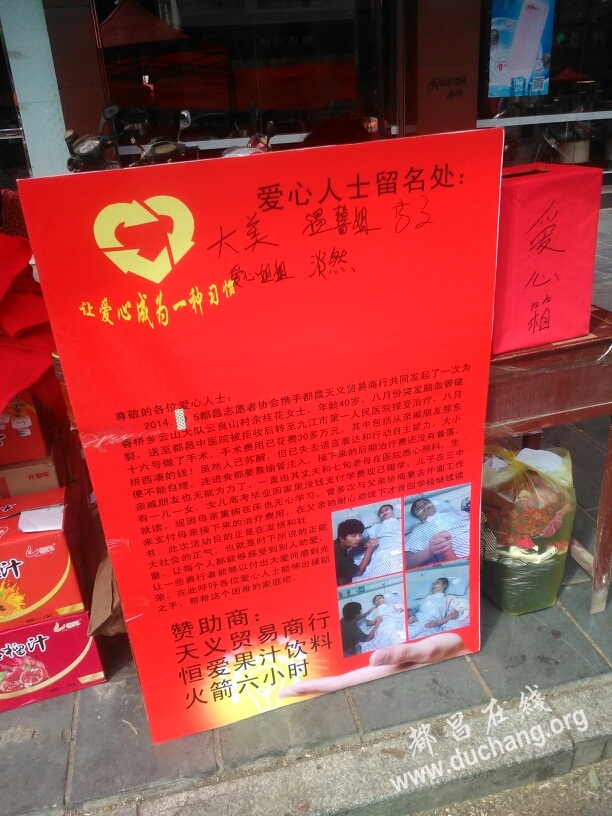 爱心人士留名处：
大美 温馨姐
爱心姐姐 淡然
让爱心成为一种习惯
爱心箱
尊敬的各位爱心人士：
5都昌志愿者协会携手都昌天义贸易商行共同发起了一次为
春桥乡云山大队云良山村余桂花女士，年龄40岁，八月份突发脑血管破
裂，送至都昌中医院被拒收后转至九江市第一人民医院接受治疗，八月
十六号做了手术，手术费用已花费30多万元，其中包括从亲戚朋友那东
拼西凑的钱！虽然人已苏醒，但已失去语言表达和行动自主能力，大小
便不能自理，连进食都要靠输管注入，接下来的后期治疗费还没有着落，
亲戚朋友也无能为力了，一直由其丈夫和七旬老母在医院悉心照料，生
有一儿一女，女儿高考毕业因家里没钱支付学费现已辍学，儿子在三中
就读，现因母亲重病在床也无心学习，曾多次与父亲协商要去外面工作
来支付母亲接下来的治疗费用，在父亲的耐心劝说下才肯回学校继续读
书，此次活动目的正是在发扬和壮
大社会的正气，也就是时下所说的正能
量，让每个人都能够感受到别人的爱，
让一些善行者能够以付出大爱而感到光
荣，在此呼吁各位爱心人士能伸出援助
之手，帮帮这个困难的家庭吧。
赞助商：
天义贸易商行
恒爱果汁饮料
火箭六小时
都昌在线
www.duchang.org